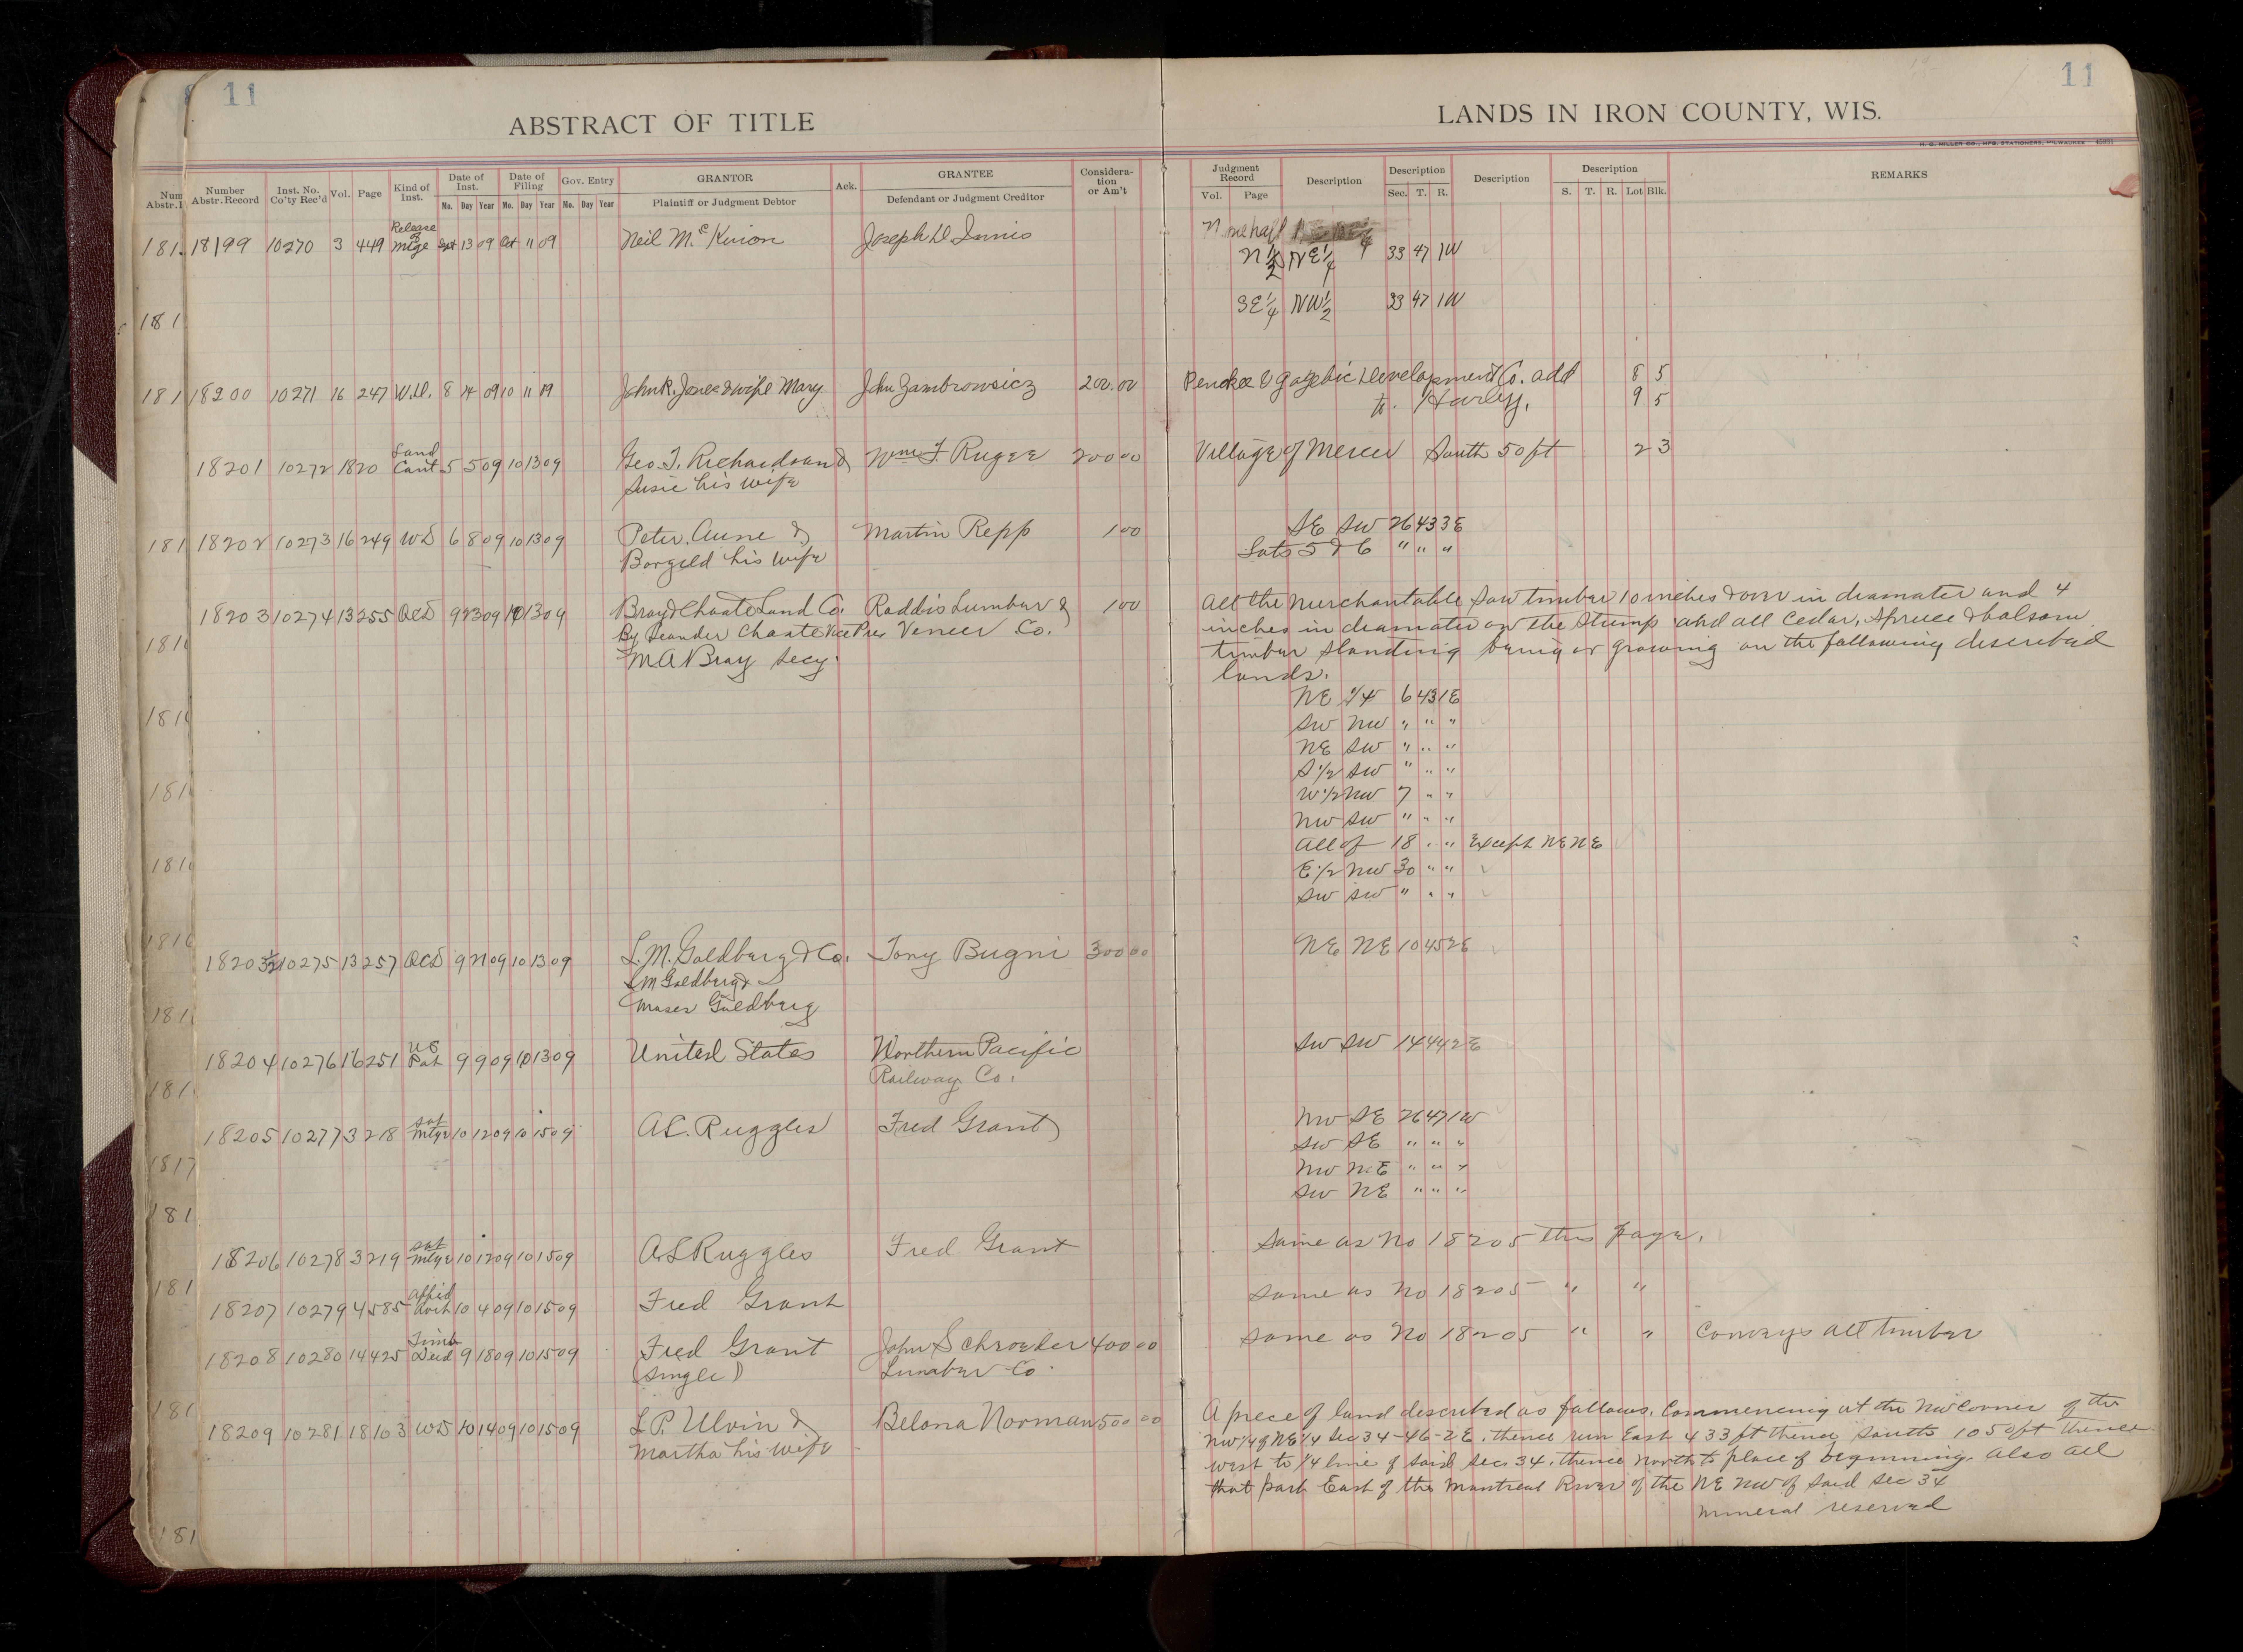 11
11
ABSTRACT OF TITLE
LANDS IN IRON COUNTY, WIS.
H. G. MILLER CO., MFG. STATIONERS, MILWAUKEE
Number Abstr. Record
Inst. No. Co'ty Rec'd
Vol.
Page
Kind of Inst.
Date of Inst.
Mo. Day Year
Date of Filing
Mo. Day Year
Gov. Entry
Mo. Day Year
GRANTOR
Plaintiff or Judgment Debtor
Ack.
GRANTEE
Defendant or Judgment Creditor
Considera-tion or Am't
Judgment Record
Vol. Page
Description
Description
Sec. T. R.
Description
Description
S. T. R. Lot Blk.
REMARKS
18199 10270 3 449 Release of Mtge 13 09 Oct 11 09 Neil Joseph D Innis
N 1/2 NE 1/4 33 47 1W
SE 1/4 NW 1/2 33 47 1W
18200 10271 16 247 W.D. 8 14 09 10 11 09 John R. Jones & wife Mary John Zambrowsicz 200.00 Penokee & Gogebic Development Co. add 8 5
to Hurley. 9 5
18201 10272 18 20 Land Cont 5 5 09 10 13 09 Geo. T. Richardson & Wm F. Rugee 200 00 Village of Mercer South 50 ft 2 3
Susie his wife
18202 10273 16 249 WD 6 8 09 10 13 09 Peter Aune & Martin Repp 1 00 SE SW 26 43 3E
Borgeld his wife Lots 5 & 6 " " "
18203 10274 13 255 QCD 9 23 09 10 13 09 Bray & Choate Land Co. Raddis Lumber & 1 00 All the Merchantable Saw timber 10 inches & over in diamater and 4
By Leander Choate Vice Pres Veneer Co. inches in diamater on the Stump and all Cedar, Spruce & balsom
M A Bray Secy. timber standing being or growing on the following described
lands.
NE 1/4 6 43 1E
SW NW " " "
NE SW " " "
S 1/2 SW " " "
W 1/2 NW 7 " "
NW SW " " "
All of 18 " " Except NE NE
E 1/2 NW 30 " "
SW SW " " "
18203 1/2 10275 13 257 QCD 9 21 09 10 13 09 L. M. Goldberg & Co. Tony Bugni 300 00 NE NE 10 45 2E
L M Goldberg &
Moser Goldberg
18204 10276 16 251 US Pat 9 9 09 10 13 09 United States Northern Pacific SW SW 14 44 2E
Railway Co.
18205 10277 3 218 Sat Mtge 10 12 09 10 15 09 A L. Ruggles Fred Grant NW SE 26 47 1W
SW SE " " "
NW NE " " "
SW NE " " "
18206 10278 3 219 Sat Mtge 10 12 09 10 15 09 A L Ruggles Fred Grant Same as No 18205 this page.
18207 10279 4 585 Affid avit 10 4 09 10 15 09 Fred Grant Same as No 18205 " "
18208 10280 14 425 Timb Deed 9 18 09 10 15 09 Fred Grant John Schroeder 400 00 Same as No 18205 " " Conveys all timber
(single) Lumber Co.
18209 10281 18 103 WD 10 14 09 10 15 09 L. P. Ulvin & Belona Norman 500 00 A piece of land described as follows. Commencing at the NW Corner of the
Martha his wife NW 1/4 of NE 1/4 Sec 34-46-2E. thence run East 433 ft thence South 1050 ft thence
west to 1/4 line of said Sec 34. thence North to place of beginning. Also all
that part East of the Montreal River of the NE NW of said Sec 34
Mineral reserved